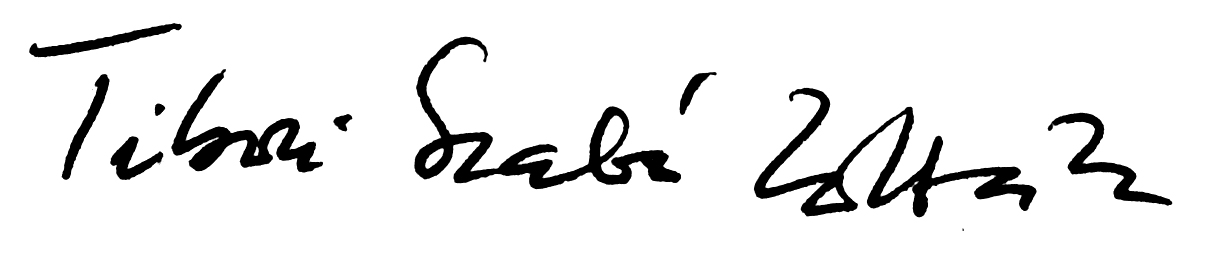 Tibori Szabó Zoltán